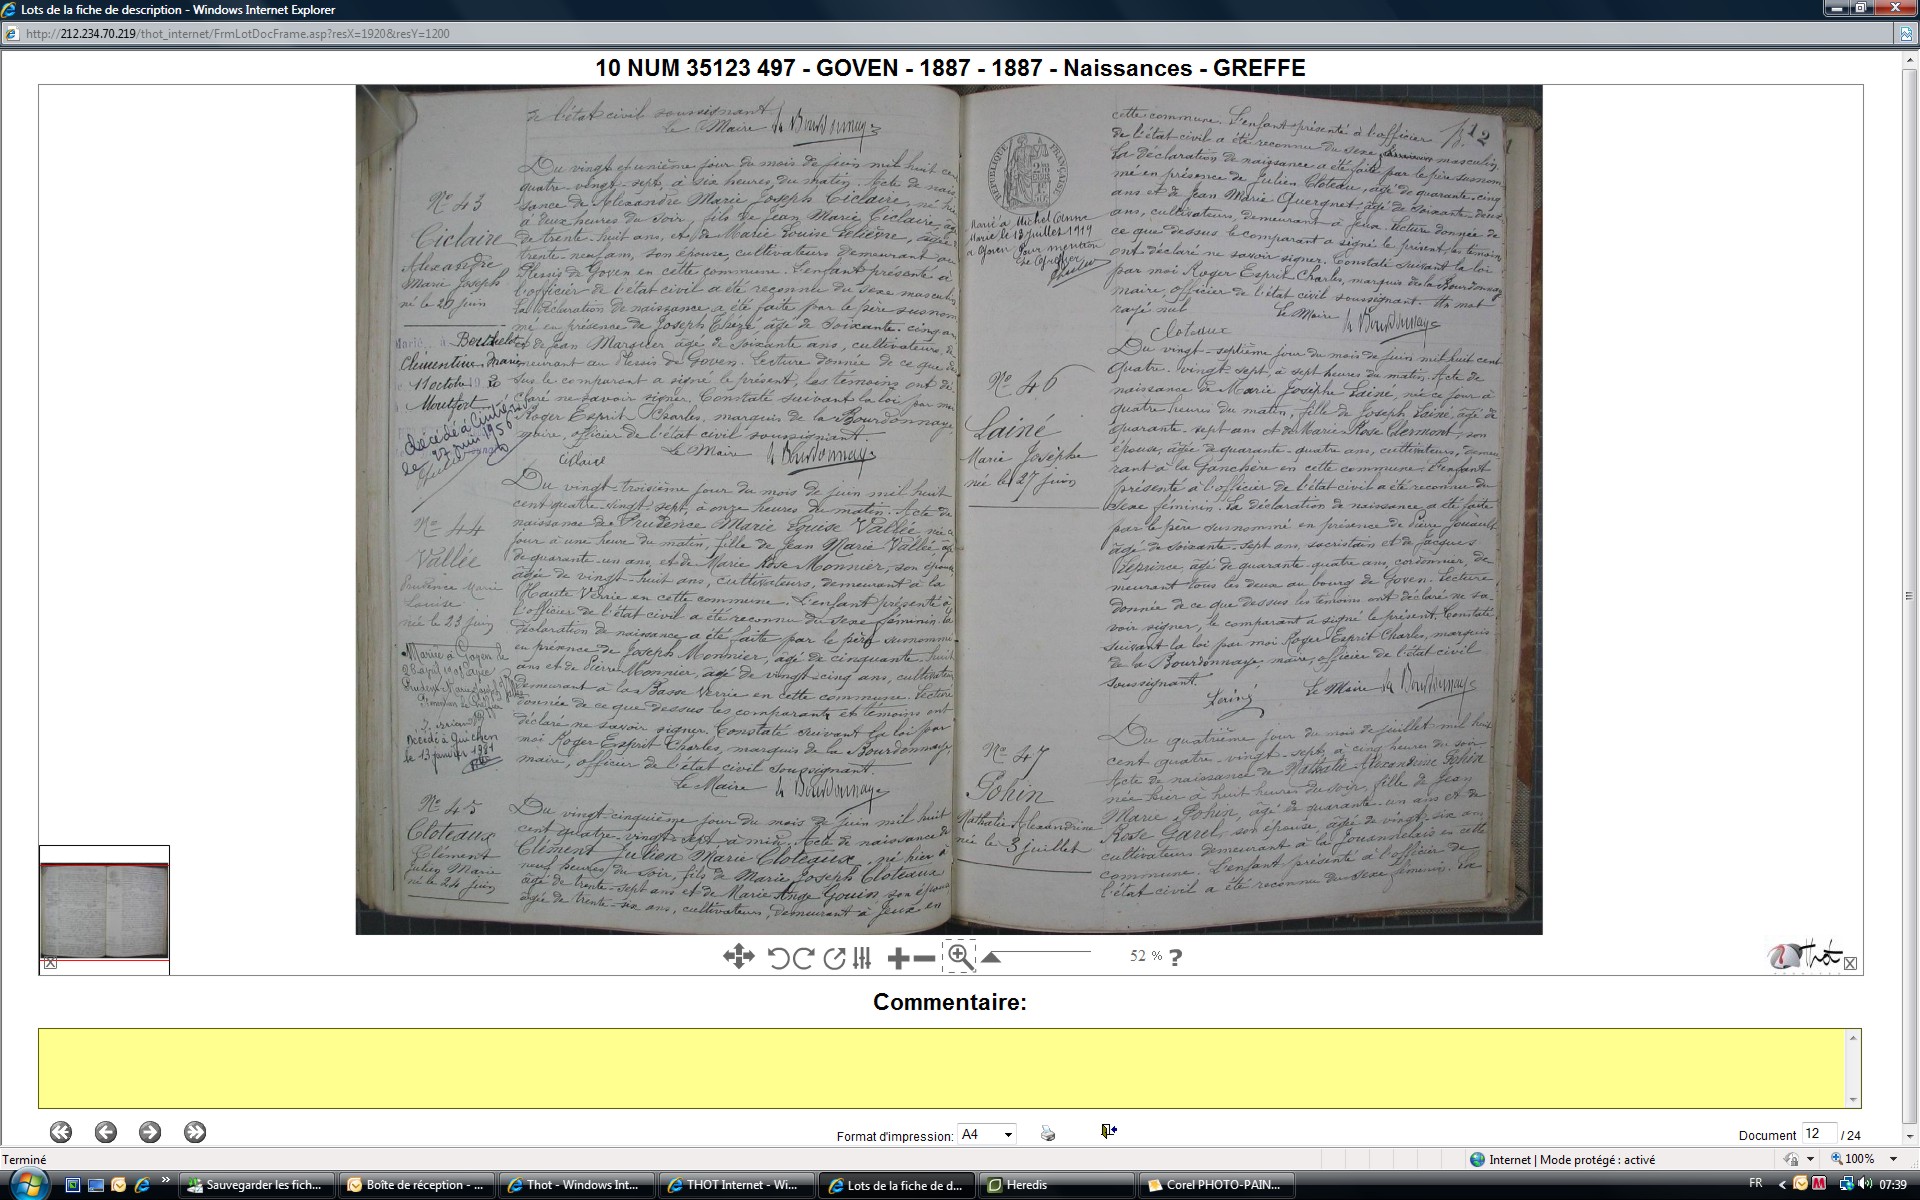 Lots de la fiche de description - Windows Internet Explorer
http://212.234.70.219/thot_internet/FrmLotDocFrame.asp?resX=1920&resY=1200
10 NUM 35123 497 - GOVEN - 1887 - 1887 - Naissances - GREFFE
de l'état civil soussignant
Le Maire de la Bourdonnaye
N° 43
Ciclaire
Alexandre
Marie Joseph
né le 20 juin
Marié à Berthelot
Clémentine Marie
11 octobre
Montfort
décédé à
le 27 juin 1956
Du vingt et unième jour du mois de juin mil huit cent
quatre-vingt-sept, à six heures du matin. Acte de nais
sance de Alexandre Marie Joseph Ciclaire, né hier
à deux heures du soir, fils de Jean Marie Ciclaire, âgé
de trente-huit ans, et de Marie Louise Lelièvre, âgée
trente-neuf ans, son épouse, cultivateurs demeurant au
Plessis de Goven en cette commune. L'enfant présenté à
l'officier de l'état civil a été reconnu du sexe masculin
La déclaration de naissance a été faite par le père susnom
mé en présence de Joseph Thézé, âgé de soixante-cinq ans
et de Jean Marquer âgé de soixante ans, cultivateurs, de
meurant au Plessis de Goven. Lecture donnée de ce que des
sus le comparant a signé le présent, les témoins ont dé
claré ne savoir signer. Constaté suivant la loi par moi
Roger Esprit Charles, marquis de la Bourdonnaye
maire, officier de l'état civil soussignant.
Ciclaire Le Maire de la Bourdonnaye
N° 44
Vallée
Prudence Marie
Louise
née le 23 juin
Mariée à Goven le
28 avril 1908 avec
Décédée à Guichen
le 13 janvier 1981
Du vingt-troisième jour du mois de juin mil huit
cent quatre-vingt-sept, à onze heures du matin. Acte de
naissance de Prudence Marie Louise Vallée née ce
jour à une heure du matin, fille de Jean Marie Vallée, âgé
de quarante-un ans, et de Marie Rose Monnier, son épouse,
âgée de vingt-huit ans, cultivateurs, demeurant à la
Haute Verrie en cette commune. L'enfant présenté à
l'officier de l'état civil a été reconnu du sexe féminin. La
déclaration de naissance a été faite par le père susnommé
en présence de Joseph Monnier, âgé de cinquante-huit
ans et de Pierre Monnier, âgé de vingt-cinq ans, cultivateurs
demeurant à la Basse Verrie en cette commune. Lecture
donnée de ce que dessus les comparants et témoins ont
déclaré ne savoir signer. Constaté suivant la loi par
moi Roger Esprit Charles, marquis de la Bourdonnaye,
maire, officier de l'état civil soussignant.
Le Maire de la Bourdonnaye
N° 45
Cloteaux
Clément
Julien Marie
né le 24 juin
Du vingt-cinquième jour du mois de juin mil huit
cent quatre-vingt-sept à midi. Acte de naissance de
Clément Julien Marie Cloteaux, né hier à
neuf heures du soir, fils de Marie Joseph Cloteaux
âgé de trente-sept ans et de Marie Ange Gouin, son épouse
âgée de trente-six ans, cultivateurs, demeurant à Jeux en
RÉPUBLIQUE FRANÇAISE
12
Marié à Michel Anne
Marie le 13 juillet 1919
à Goven. Pour mention
Le Greffier
cette commune. L'enfant présenté à l'officier
de l'état civil a été reconnu du sexe masculin
La déclaration de naissance a été faite par le père susnom
mé en présence de Julien Cloteau, âgé de quarante-cinq
ans et de Jean Marie Quergnet, âgé de soixante-deux
ans, cultivateurs, demeurant à Jeux. Lecture donnée de
ce que dessus le comparant a signé le présent, les témoins
ont déclaré ne savoir signer. Constaté suivant la loi
par moi Roger Esprit Charles, marquis de la Bourdonnaye
maire, officier de l'état civil soussignant. Un mot
rayé nul Le Maire de la Bourdonnaye
Cloteaux
N° 46
Lainé
Marie Josèphe
née le 27 juin
Du vingt-septième jour du mois de juin mil huit cent
quatre-vingt-sept, à sept heures du matin. Acte de
naissance de Marie Josèphe Lainé, née ce jour à
quatre heures du matin, fille de Joseph Lainé, âgé de
quarante-sept ans et de Marie Rose Clermont, son
épouse, âgée de quarante-quatre ans, cultivateurs, demeu
rant à la Ganchère en cette commune. L'enfant
présenté à l'officier de l'état civil a été reconnu du
sexe féminin. La déclaration de naissance a été faite
par le père surnommé en présence de Pierre Jouault
âgé de soixante-sept ans, sacristain et de Jacques
Leprince, âgé de quarante-quatre ans, cordonnier, de
meurant tous les deux au bourg de Goven. Lecture
donnée de ce que dessus les témoins ont déclaré ne sa
voir signer, le comparant a signé le présent. Constaté
suivant la loi par moi Roger Esprit Charles, marquis
de la Bourdonnaye, maire, officier de l'état civil
soussignant.
Le Maire de la Bourdonnaye
N° 47
Pohin
Nathalie Alexandrine
née le 3 juillet
Du quatrième jour du mois de juillet mil huit
cent quatre-vingt-sept, à cinq heures du soir
Acte de naissance de Nathalie Alexandrine Pohin
née hier à huit heures du soir, fille de Jean
Marie Pohin, âgé de quarante-un ans et de
Rose Garel, son épouse, âgée de vingt-six ans
cultivateurs demeurant à la Jouannelais en cette
commune. L'enfant présenté à l'officier de
l'état civil a été reconnu du sexe féminin. La
52 % ?
Thot
Commentaire:
Format d'impression: A4
Document 12 / 24
Terminé
Internet | Mode protégé : activé
100%
Sauvegarder les fich...
Boîte de réception - ...
Thot - Windows Int...
THOT Internet - Wi...
Lots de la fiche de d...
Heredis
Corel PHOTO-PAIN...
FR
07:39